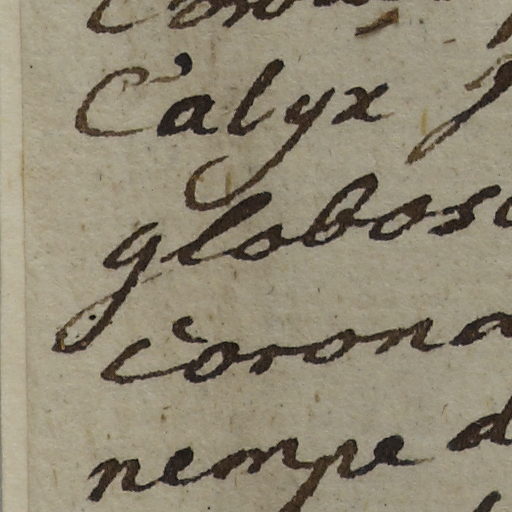 Calyx
globos
corona
nempe